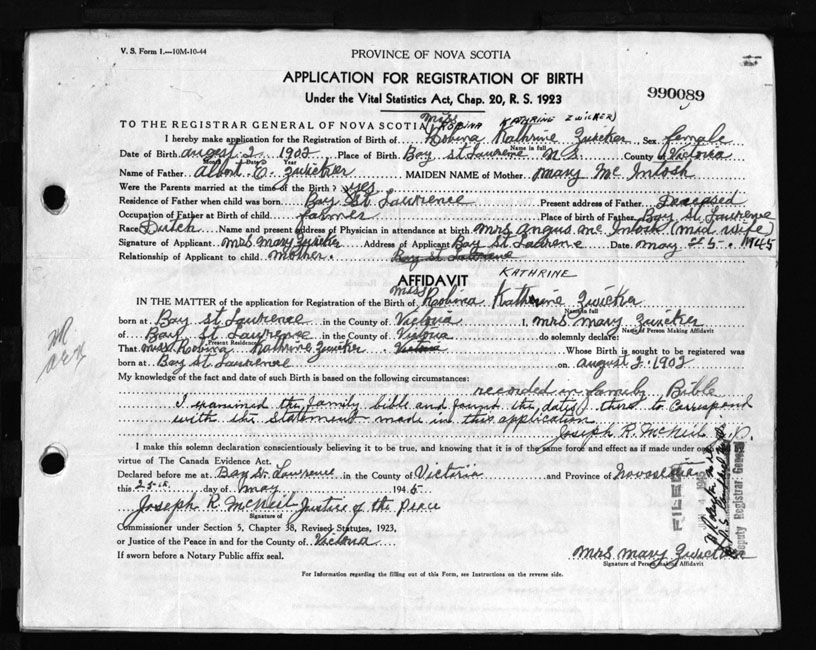 V. S. Form 1.—10M-10-44
PROVINCE OF NOVA SCOTIA
APPLICATION FOR REGISTRATION OF BIRTH
990089
Under the Vital Statistics Act, Chap. 20, R. S. 1923
Miss (ROBINA KATHRINE ZWICKER)
TO THE REGISTRAR GENERAL OF NOVA SCOTIA
I hereby make application for the Registration of Birth of Robina Kathrine Zwicker Sex female
Name in full
Date of Birth august 2 1902 Place of Birth Bay St Lawrence N S County of Victoria
Month Date Year
Name of Father Albert Zwicker MAIDEN NAME of Mother Mary Mc Intosh
Were the Parents married at the time of the Birth? yes
Residence of Father when child was born Bay St Lawrence Present address of Father Deceased
Occupation of Father at Birth of child farmer Place of birth of Father Bay St Lawrence
Race Dutch Name and present address of Physician in attendance at birth mrs angus mc Intosh (mid wife)
Signature of Applicant mrs mary Zwicker Address of Applicant Bay St Lawrence Date may 25 1945
Relationship of Applicant to child mother. Bay St Lawrence
AFFIDAVIT KATHRINE
IN THE MATTER of the application for Registration of the Birth of miss Robina Katherine Zwicker
Name in full
born at Bay St Lawrence in the County of Victoria I, mrs mary Zwicker
Name of Person Making Affidavit
of Bay St Lawrence in the County of Victoria do solemnly declare:
Present Residence
That miss Robina Kathrine Zwicker Victoria Whose Birth is sought to be registered was
born at Bay St Lawrence on august 2. 1902
My knowledge of the fact and date of such Birth is based on the following circumstances:
recorded in family Bible
I examined the family bible and found the date there to correspond
with the statement made in this application
Joseph R. McNeil J.P.
I make this solemn declaration conscientiously believing it to be true, and knowing that it is of the same force and effect as if made under oath
virtue of The Canada Evidence Act.
Declared before me at Bay St. Lawrence in the County of Victoria and Province of Nova Scotia
this 25th day of may 1945
Joseph R McNeil Justice of the Peace
Signature of
Commissioner under Section 5, Chapter 38, Revised Statutes, 1923,
or Justice of the Peace in and for the County of Victoria
If sworn before a Notary Public affix seal.
mrs mary Zwicker
Signature of Person making Affidavit
For Information regarding the filling out of this Form, see Instructions on the reverse side.
FILED
Deputy Registrar General